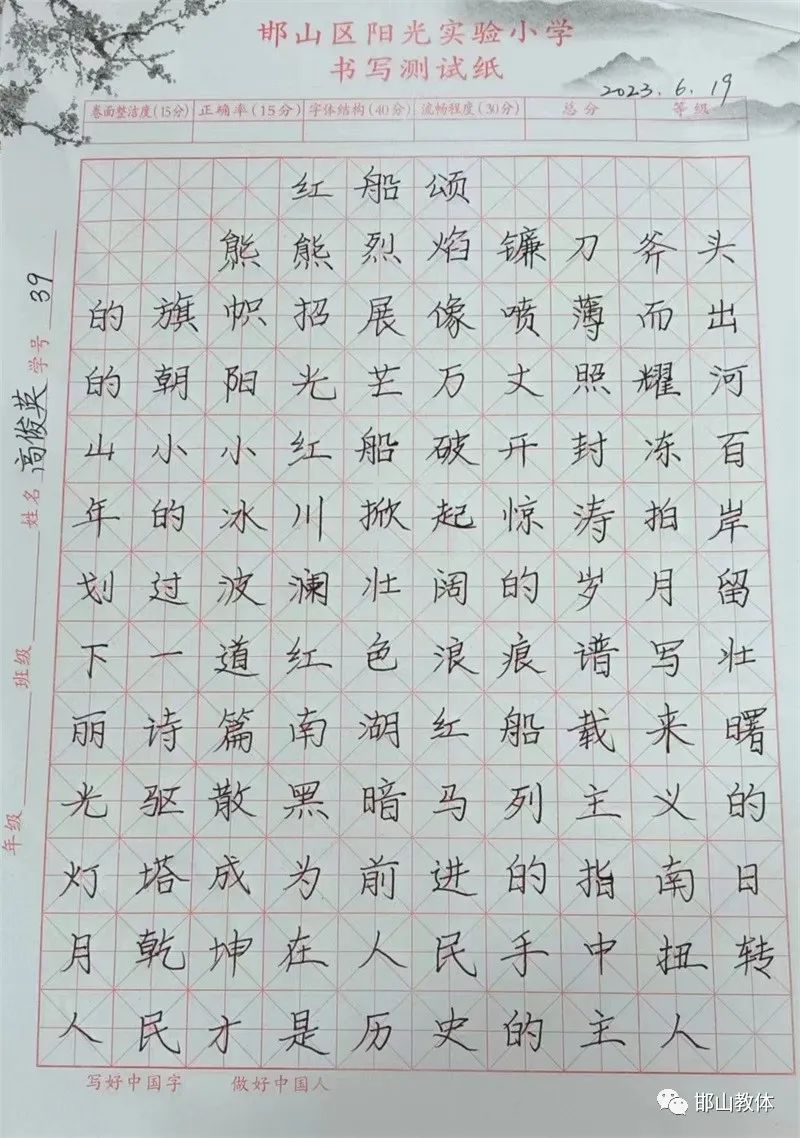 邯山区阳光实验小学
书写测试纸
2023.6.19
卷面整洁度(15分) 正确率(15分) 字体结构(40分) 流畅程度(30分) 总分 等级
年级 班级 姓名 高俊英 学号 39
红船颂
熊熊烈焰镰刀斧头
的旗帜招展像喷薄而出
的朝阳光芒万丈照耀河
山小小红船破开封冻百
年的冰川掀起惊涛拍岸
划过波澜壮阔的岁月留
下一道红色浪痕谱写壮
丽诗篇南湖红船载来曙
光驱散黑暗马列主义的
灯塔成为前进的指南日
月乾坤在人民手中扭转
人民才是历史的主人
写好中国字 做好中国人
邯山教体